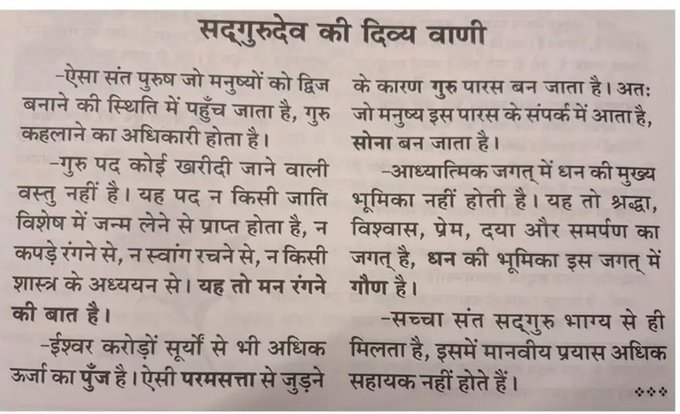 सद्‌गुरुदेव की दिव्य वाणी
-ऐसा संत पुरुष जो मनुष्यों को द्विज
बनाने की स्थिति में पहुँच जाता है, गुरु
कहलाने का अधिकारी होता है।
-गुरु पद कोई खरीदी जाने वाली
वस्तु नहीं है। यह पद न किसी जाति
विशेष में जन्म लेने से प्राप्त होता है, न
कपड़े रंगने से, न स्वांग रचने से, न किसी
शास्त्र के अध्ययन से। यह तो मन रंगने
की बात है।
-ईश्वर करोड़ों सूर्यों से भी अधिक
ऊर्जा का पुँज है। ऐसी परमसत्ता से जुड़ने
के कारण गुरु पारस बन जाता है। अतः
जो मनुष्य इस पारस के संपर्क में आता है,
सोना बन जाता है।
-आध्यात्मिक जगत् में धन की मुख्य
भूमिका नहीं होती है। यह तो श्रद्धा,
विश्वास, प्रेम, दया और समर्पण का
जगत् है, धन की भूमिका इस जगत् में
गौण है।
-सच्चा संत सद्‌गुरु भाग्य से ही
मिलता है, इसमें मानवीय प्रयास अधिक
सहायक नहीं होते हैं।